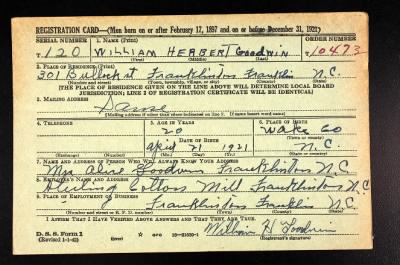 REGISTRATION CARD—(Men born on or after February 17, 1897 and on or before December 31, 1921)
SERIAL NUMBER 1. NAME (Print) ORDER NUMBER
120 William Herbert Goodwin 10473
(First) (Middle) (Last)
2. PLACE OF RESIDENCE (Print)
301 Bullock St Franklinton Franklin N.C.
(Number and street) (Town, township, village, or city) (County) (State)
[THE PLACE OF RESIDENCE GIVEN ON THE LINE ABOVE WILL DETERMINE LOCAL BOARD
JURISDICTION; LINE 2 OF REGISTRATION CERTIFICATE WILL BE IDENTICAL]
3. MAILING ADDRESS
Same
[Mailing address if other than place indicated on line 2. If same insert word same]
4. TELEPHONE 5. AGE IN YEARS 6. PLACE OF BIRTH
20 Wake Co
DATE OF BIRTH (Town or county)
April 21 1921 N.C.
(Exchange) (Number) (Mo.) (Day) (Yr.) (State or country)
7. NAME AND ADDRESS OF PERSON WHO WILL ALWAYS KNOW YOUR ADDRESS
Mrs Alice Goodwin Franklinton N C
8. EMPLOYER'S NAME AND ADDRESS
Sterling Cotton Mill Franklinton N.C
9. PLACE OF EMPLOYMENT OR BUSINESS
Franklinton Franklin N.C.
(Number and street or R. F. D. number) (Town) (County) (State)
I AFFIRM THAT I HAVE VERIFIED ABOVE ANSWERS AND THAT THEY ARE TRUE.
D. S. S. Form 1
(Revised 1-1-42) GPO 16-21630-1 William H Goodwin